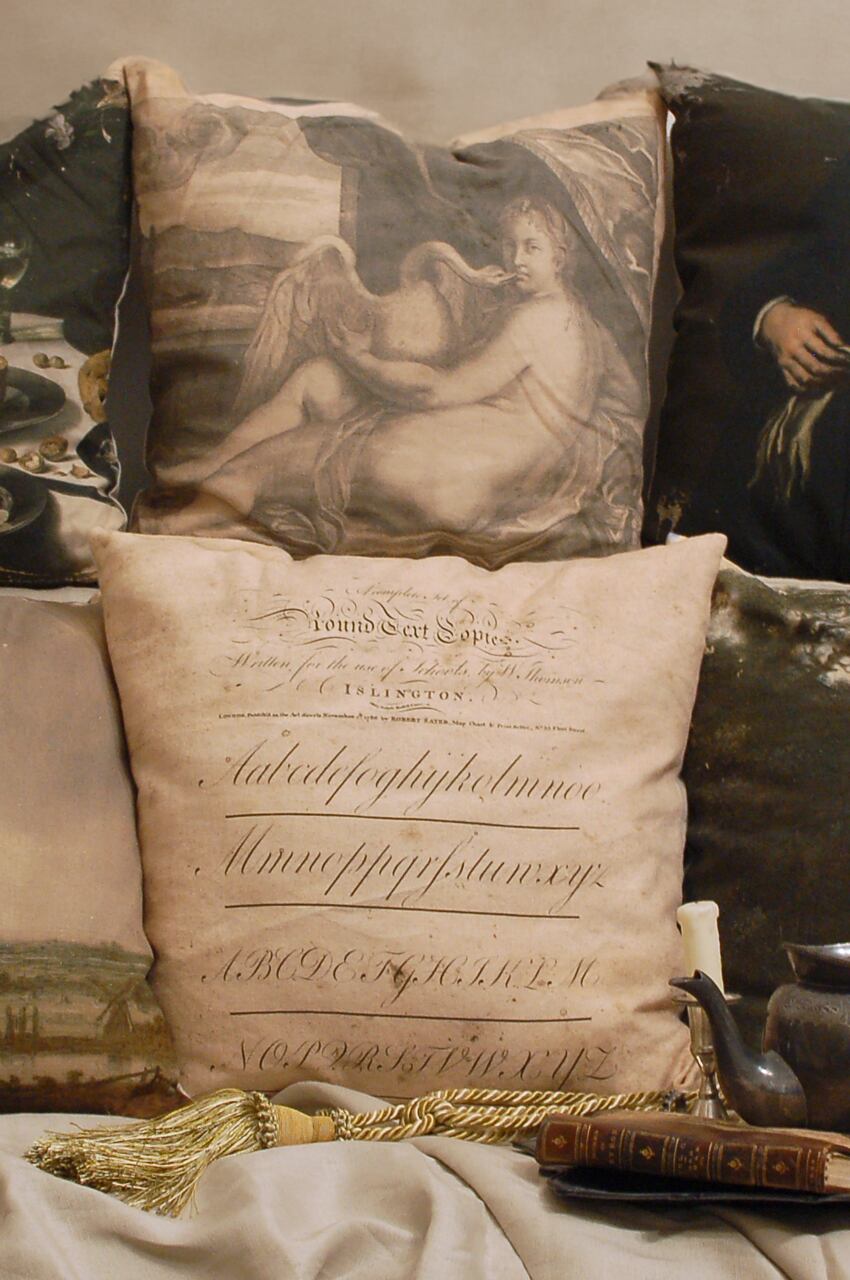 A complete Set of
Round Text Copies.
Written for the use of Schools, by W. Thomson
ISLINGTON.
LONDON, Publish'd as the Act directs November by ROBERT SAYER, Map Chart & Print Seller, No. 53 Fleet Street.
Aabcdefgghijkklmnoo
Mmnoppqrſstuvwxyz
ABCDEFGHIKLM
NOPQRSTVWXYZ